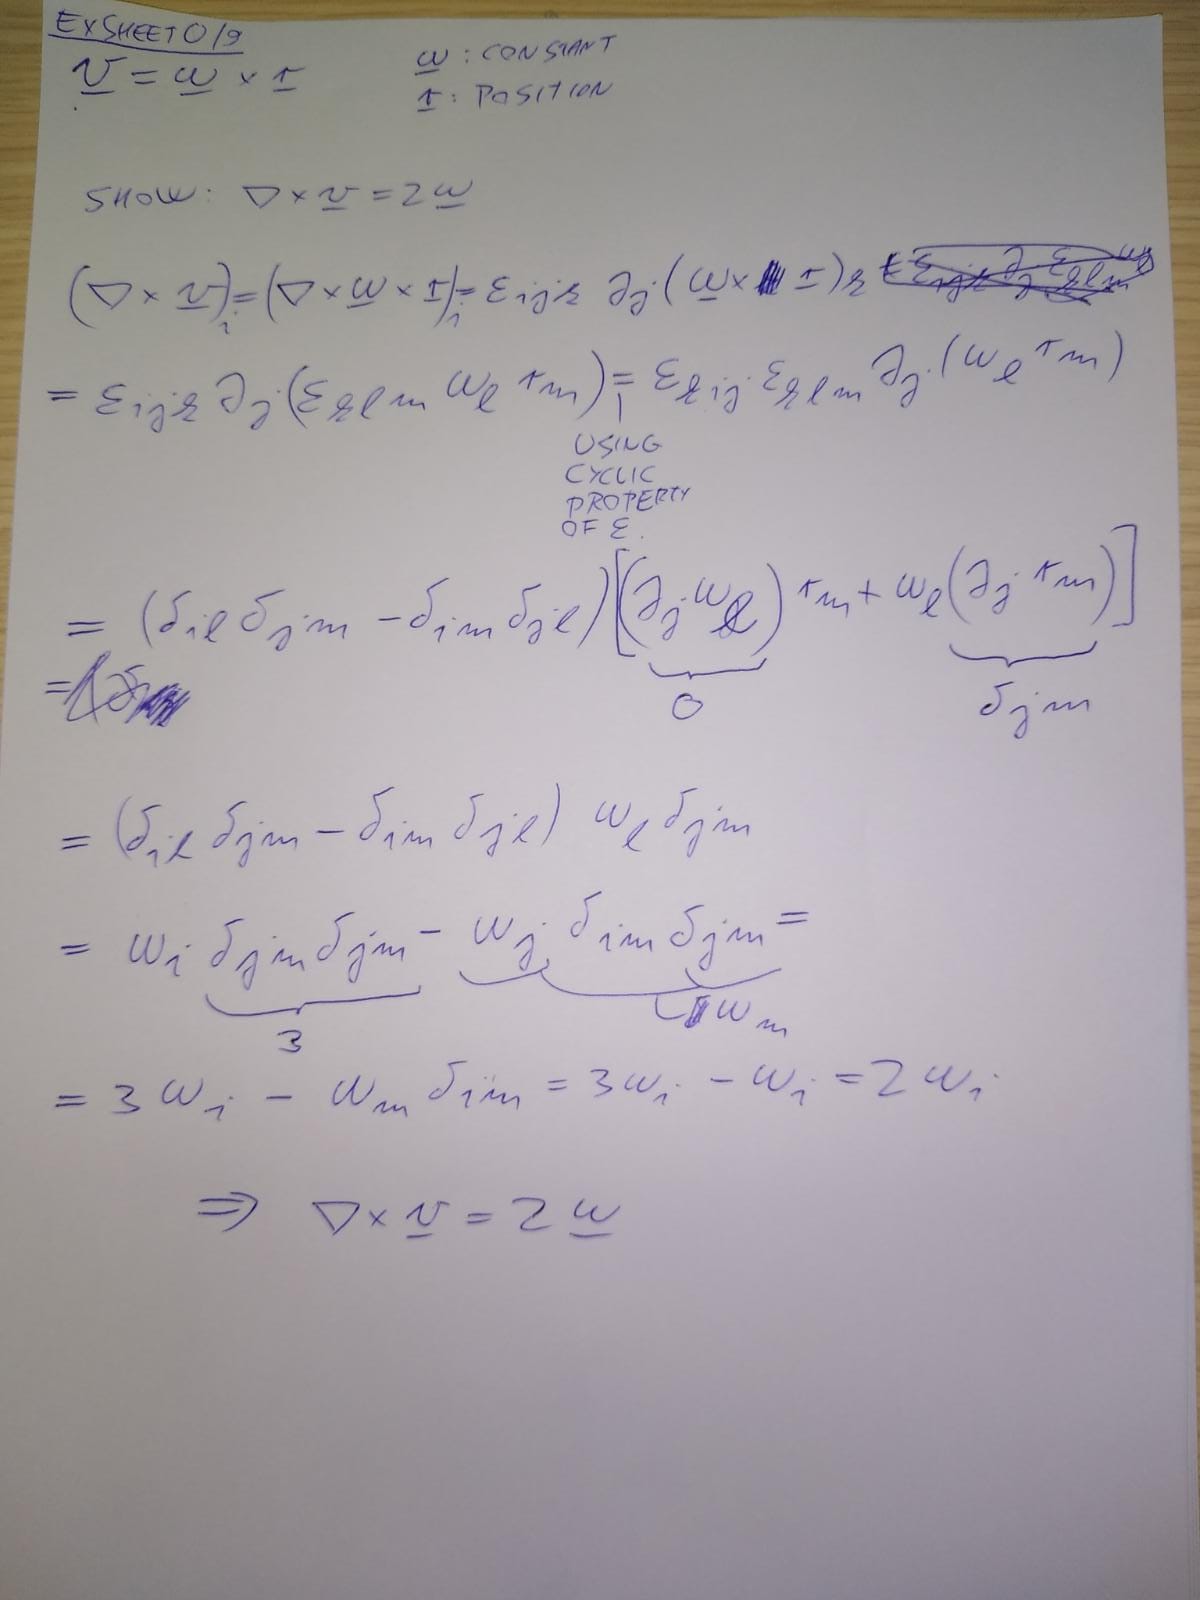 EXSHEET 0/9
v = ω × r
ω : CONSTANT
r : POSITION
SHOW: ∇ × v = 2 ω
(∇ × v)ᵢ = (∇ × ω × r)ᵢ = εᵢⱼₖ ∂ⱼ (ω × r)ₖ
= εᵢⱼₖ ∂ⱼ (εₖₗₘ ωₗ rₘ) = εₖᵢⱼ εₖₗₘ ∂ⱼ (ωₗ rₘ)
USING
CYCLIC
PROPERTY
OF ε.
= (δᵢₗ δⱼₘ − δᵢₘ δⱼₗ) [(∂ⱼ ωₗ) rₘ + ωₗ (∂ⱼ rₘ)]
0 δⱼₘ
= (δᵢₗ δⱼₘ − δᵢₘ δⱼₗ) ωₗ δⱼₘ
= ωᵢ δⱼₘ δⱼₘ − ωⱼ δᵢₘ δⱼₘ =
3 ωₘ
= 3 ωᵢ − ωₘ δᵢₘ = 3ωᵢ − ωᵢ = 2 ωᵢ
⇒ ∇ × v = 2 ω